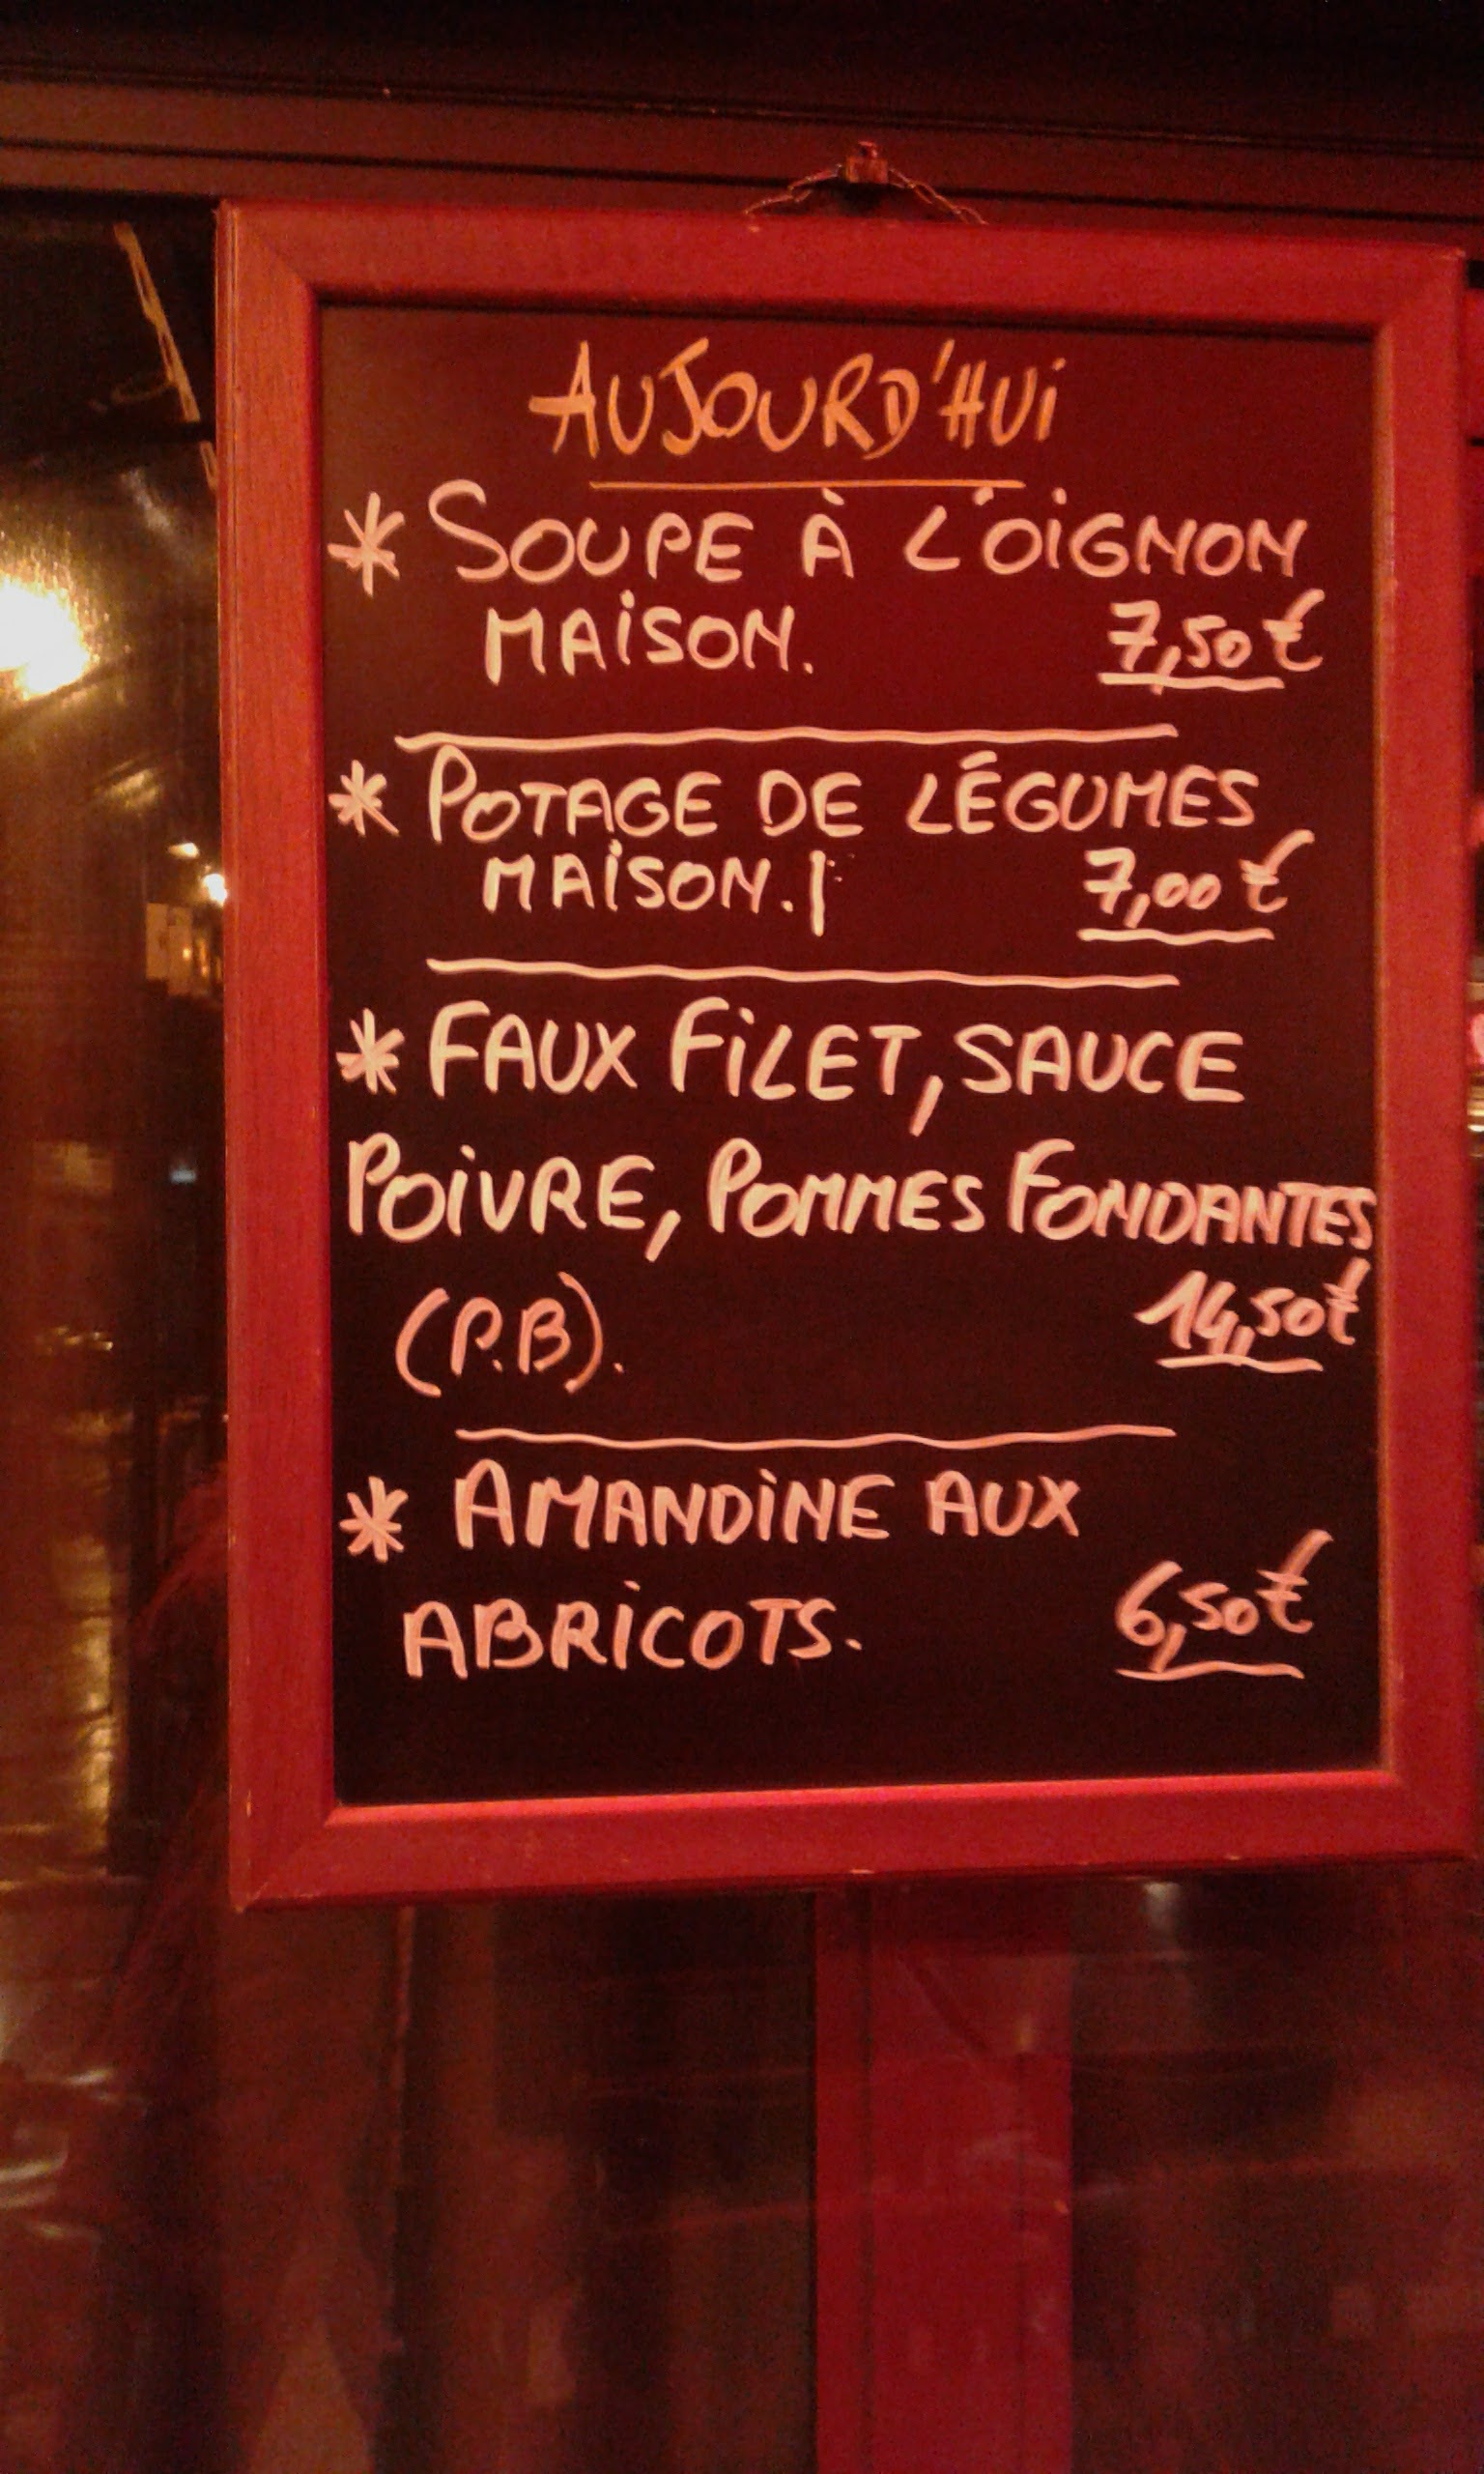 AUJOURD'HUi
* SOUPE À L'OiGNON
MAiSON. 7,50 €
* POTAGE DE LÉGUMES
MAiSON. 7,00 €
* FAUX FiLET, SAUCE
POiVRE, POMMES FONDANTES
(P.B). 14,50€
* AMANDiNE AUX
ABRiCOTS. 6,50€